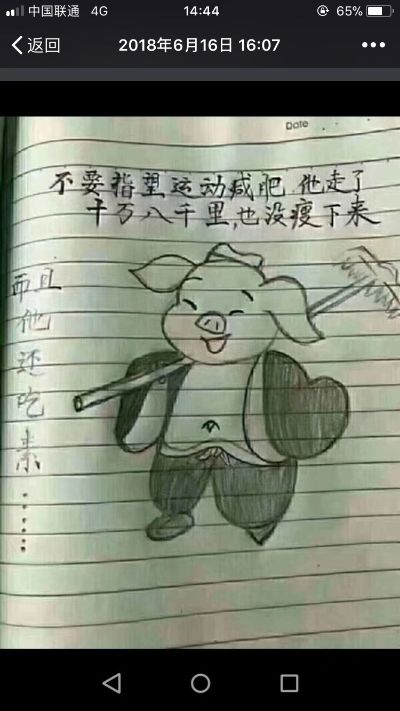 中国联通 4G 14:44 65%
返回 2018年6月16日 16:07
Date
不要指望运动减肥 他走了
十万八千里,也没瘦下来
而且
他
还
吃
素
......